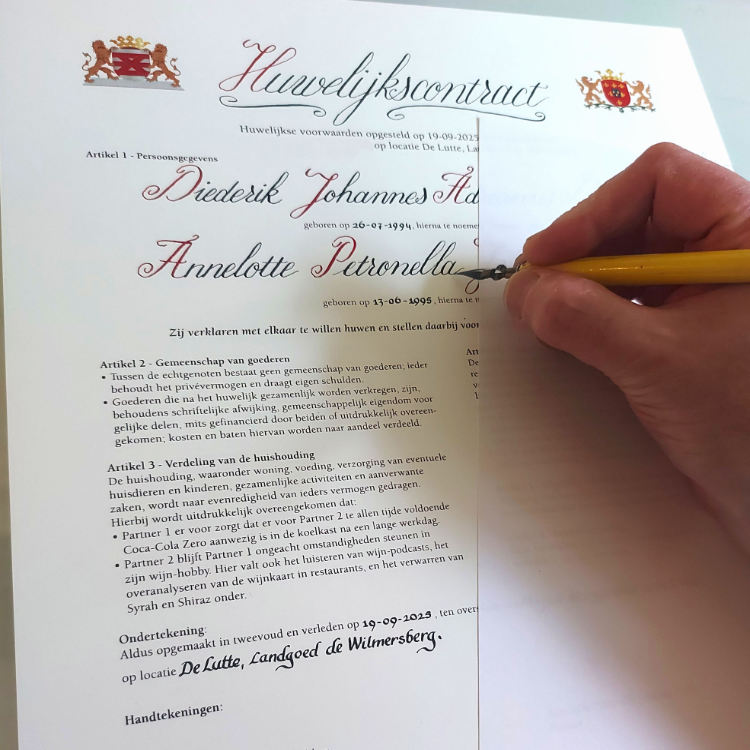 Huwelijkscontract
Huwelijkse voorwaarden opgesteld op 19-09-2025
op locatie De Lutte,
Artikel 1 - Persoonsgegevens
Diederik Johannes
geboren op 26-07-1994, hierna te
Annelotte Petronella
geboren op 13-06-1995, hierna te
Zij verklaren met elkaar te willen huwen en stellen daarbij
Artikel 2 - Gemeenschap van goederen
• Tussen de echtgenoten bestaat geen gemeenschap van goederen; ieder
behoudt het privévermogen en draagt eigen schulden.
• Goederen die na het huwelijk gezamenlijk worden verkregen, zijn,
behoudens schriftelijke afwijking, gemeenschappelijk eigendom voor
gelijke delen, mits gefinancierd door beiden of uitdrukkelijk overeen-
gekomen; kosten en baten hiervan worden naar aandeel verdeeld.
Artikel 3 - Verdeling van de huishouding
De huishouding, waaronder woning, voeding, verzorging van eventuele
huisdieren en kinderen, gezamenlijke activiteiten en aanverwante
zaken, wordt naar evenredigheid van ieders vermogen gedragen.
Hierbij wordt uitdrukkelijk overeengekomen dat:
• Partner 1 er voor zorgt dat er voor Partner 2 te allen tijde voldoende
Coca-Cola Zero aanwezig is in de koelkast na een lange werkdag.
• Partner 2 blijft Partner 1 ongeacht omstandigheden steunen in
zijn wijn-hobby. Hier valt ook het luisteren van wijn-podcasts, het
overanalyseren van de wijnkaart in restaurants, en het verwarren van
Syrah en Shiraz onder.
Ondertekening:
Aldus opgemaakt in tweevoud en verleden op 19-09-2025, ten
op locatie De Lutte, Landgoed de Wilmersberg.
Handtekeningen: